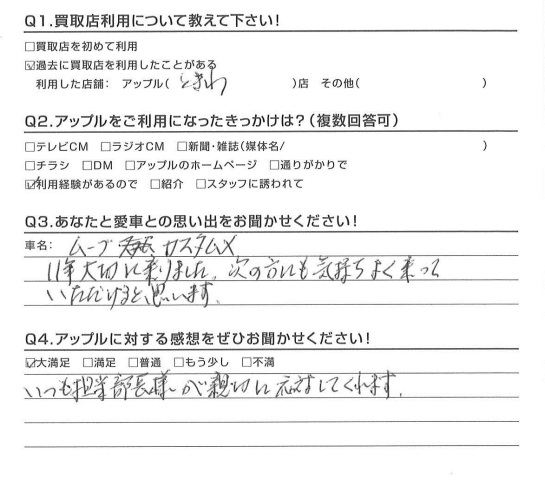 Q1.買取店利用について教えて下さい！
□買取店を初めて利用
☑過去に買取店を利用したことがある
利用した店舗： アップル（ ときわ ）店 その他（ ）
Q2.アップルをご利用になったきっかけは？（複数回答可）
□テレビCM □ラジオCM □新聞・雑誌（媒体名/ ）
□チラシ □DM □アップルのホームページ □通りがかりで
☑利用経験があるので □紹介 □スタッフに誘われて
Q3.あなたと愛車との思い出をお聞かせください！
車名： ムーブ カスタムX
11年大切に乗りました。次の方にも気持ちよく乗って
いただけると思います。
Q4.アップルに対する感想をぜひお聞かせください！
☑大満足 □満足 □普通 □もう少し □不満
いつも担当部長様が親切に応対してくれます。